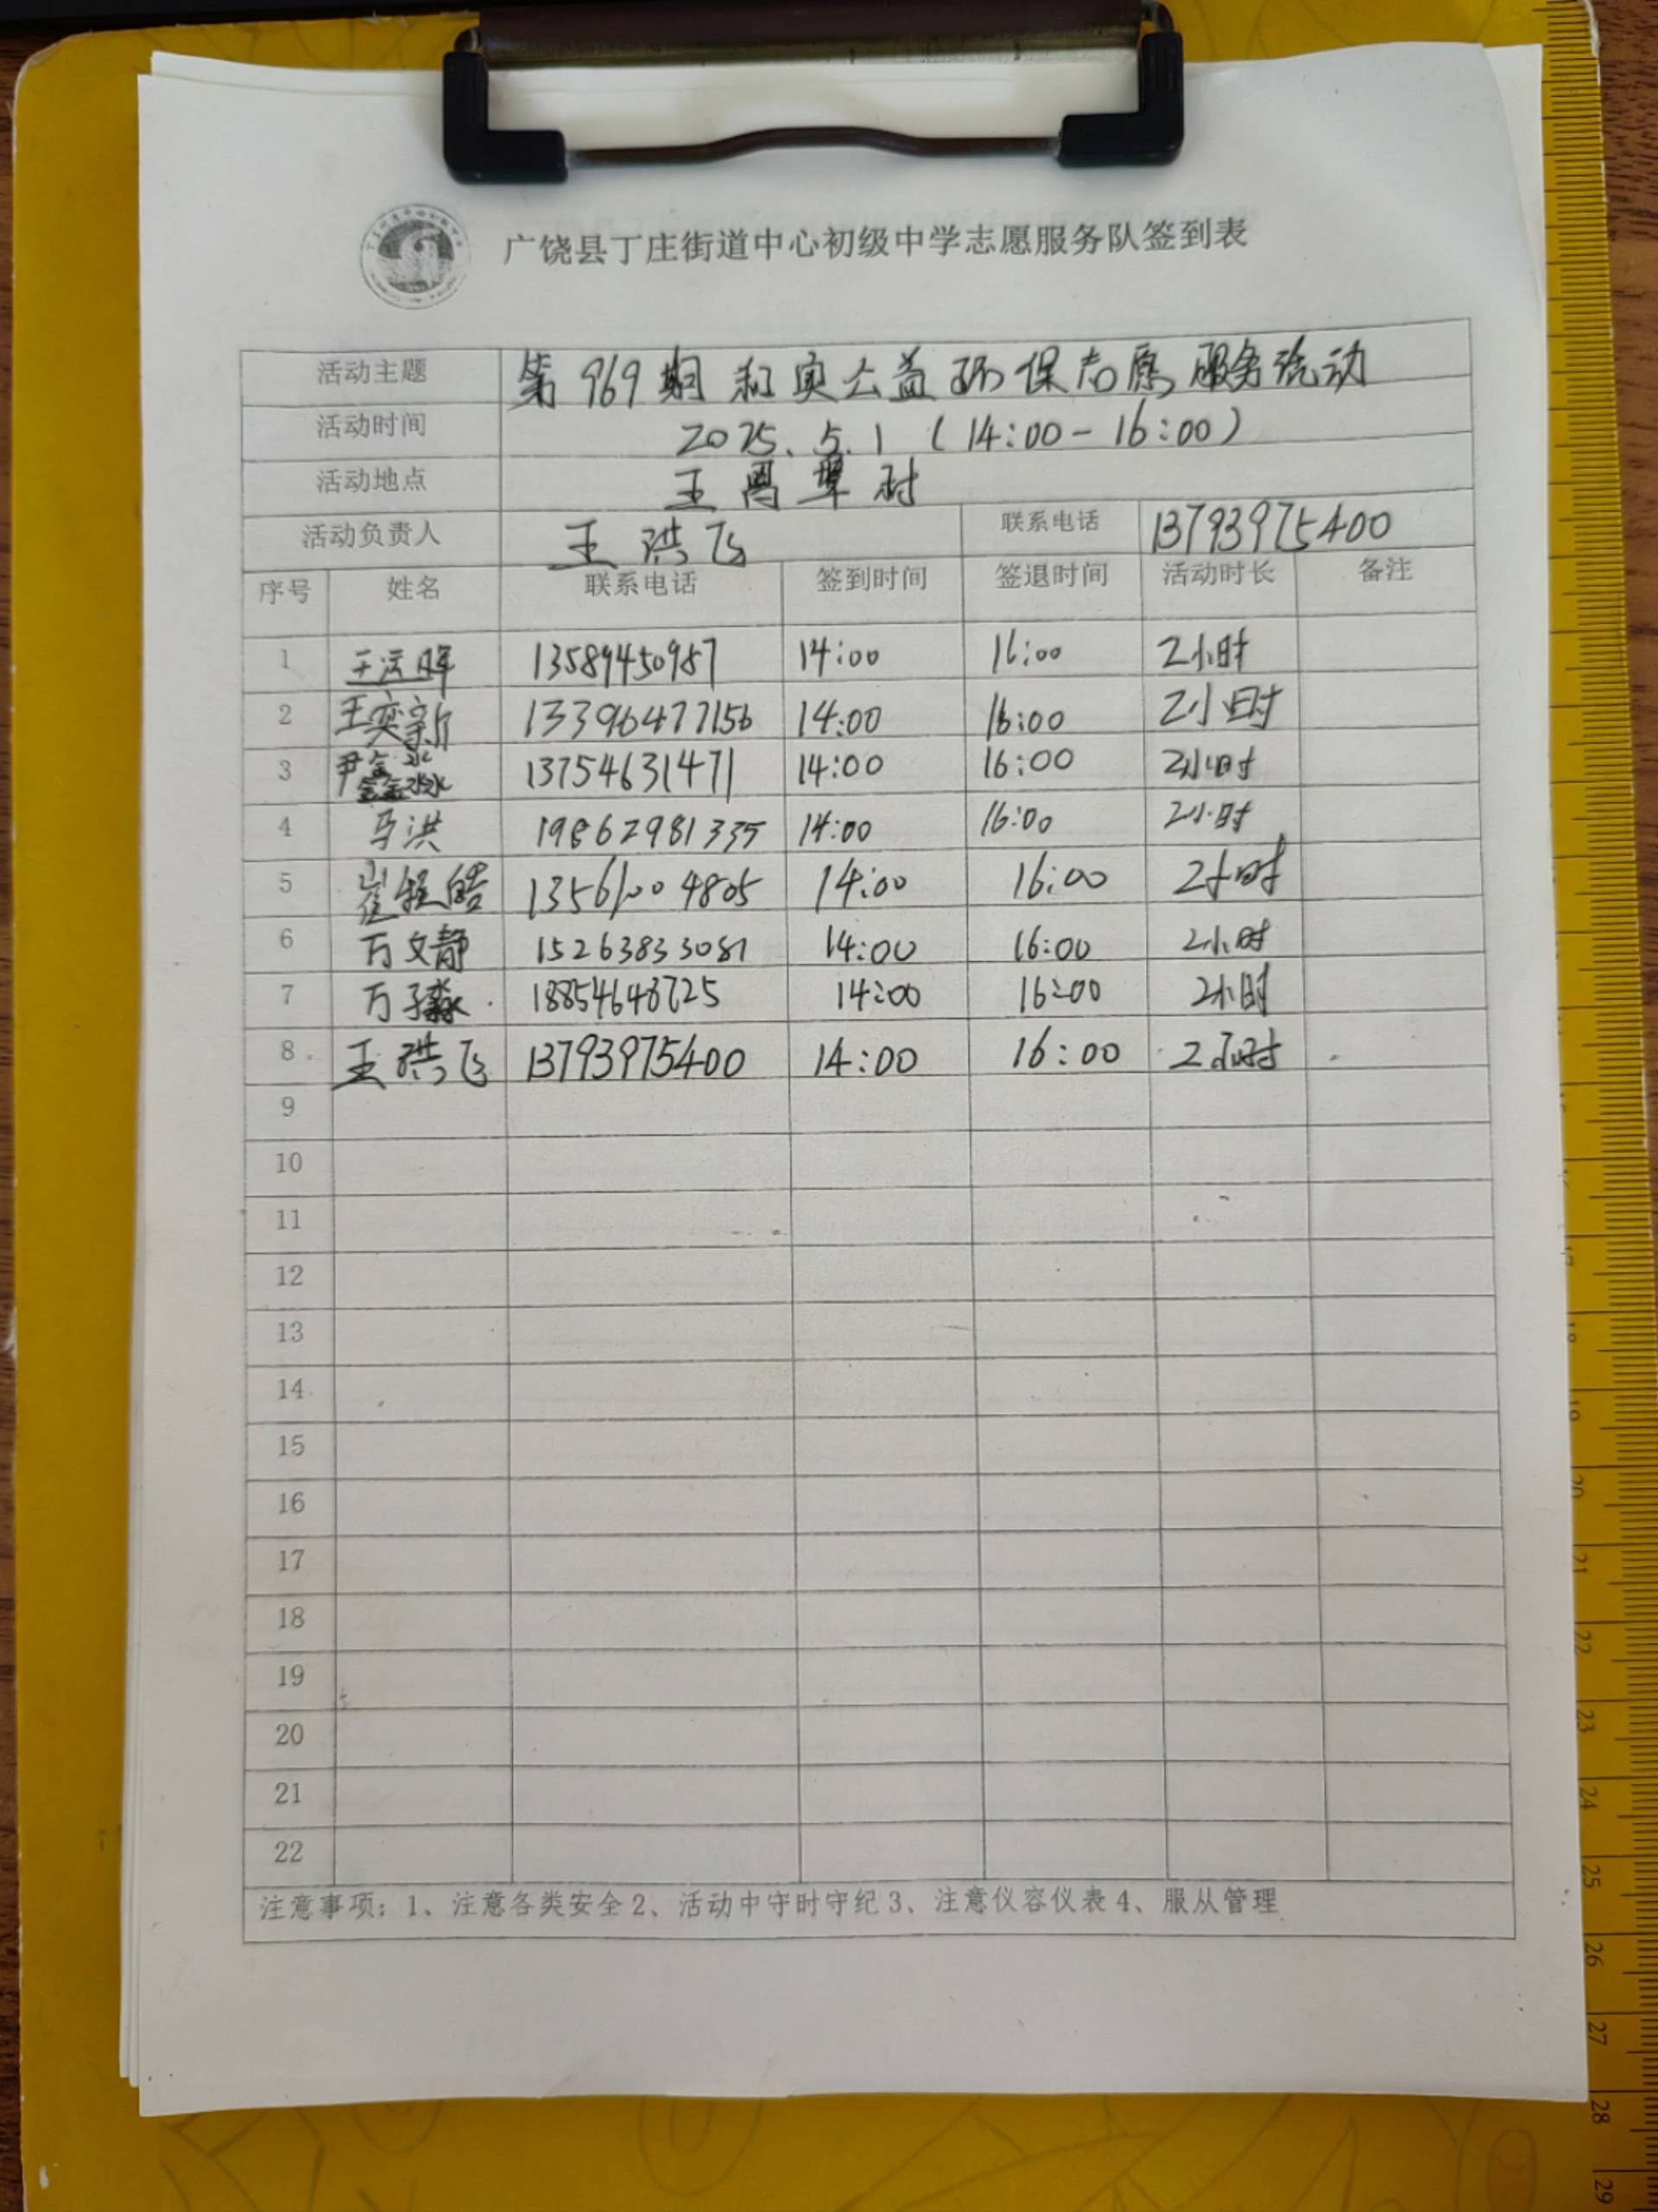 广饶县丁庄街道中心初级中学志愿服务队签到表
活动主题 第969期和实公益环保志愿服务活动
活动时间 2025.5.1(14:00-16:00)
活动地点 王 村
活动负责人 王洪飞 联系电话 13793975400
序号 姓名 联系电话 签到时间 签退时间 活动时长 备注
1 13589450987 14:00 16:00 2小时
2 王奕新 13396477156 14:00 16:00 2小时
3 尹鑫淼 13754631471 14:00 16:00 2小时
4 马洪 19862981335 14:00 16:00 2小时
5 崔程皓 13561004805 14:00 16:00 2小时
6 万文静 15263833081 14:00 16:00 2小时
7 万子淼 14:00 16:00 2小时
8 王洪飞 13793975400 14:00 16:00 2小时
9
10
11
12
13
14
15
16
17
18
19
20
21
22
注意事项:1、注意各类安全2、活动中守时守纪3、注意仪容仪表4、服从管理
17
18
19
20
21
22
23
24
25
26
27
28
29